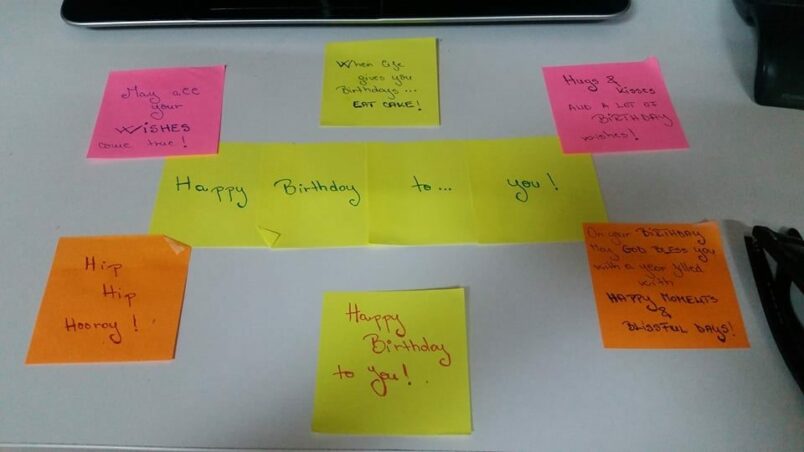 May all
your
WISHES
come true!
When life
gives you
Birthdays...
EAT CAKE!
Hugs &
kisses
AND A LOT OF
BIRTHDAY
wishes!
Happy Birthday to... you!
Hip
Hip
Hooray!
Happy
Birthday
to you!
On your BIRTHDAY
May GOD BLESS you
with a year filled
with
HAPPY MOMENTS
&
BLISSFUL DAYS!